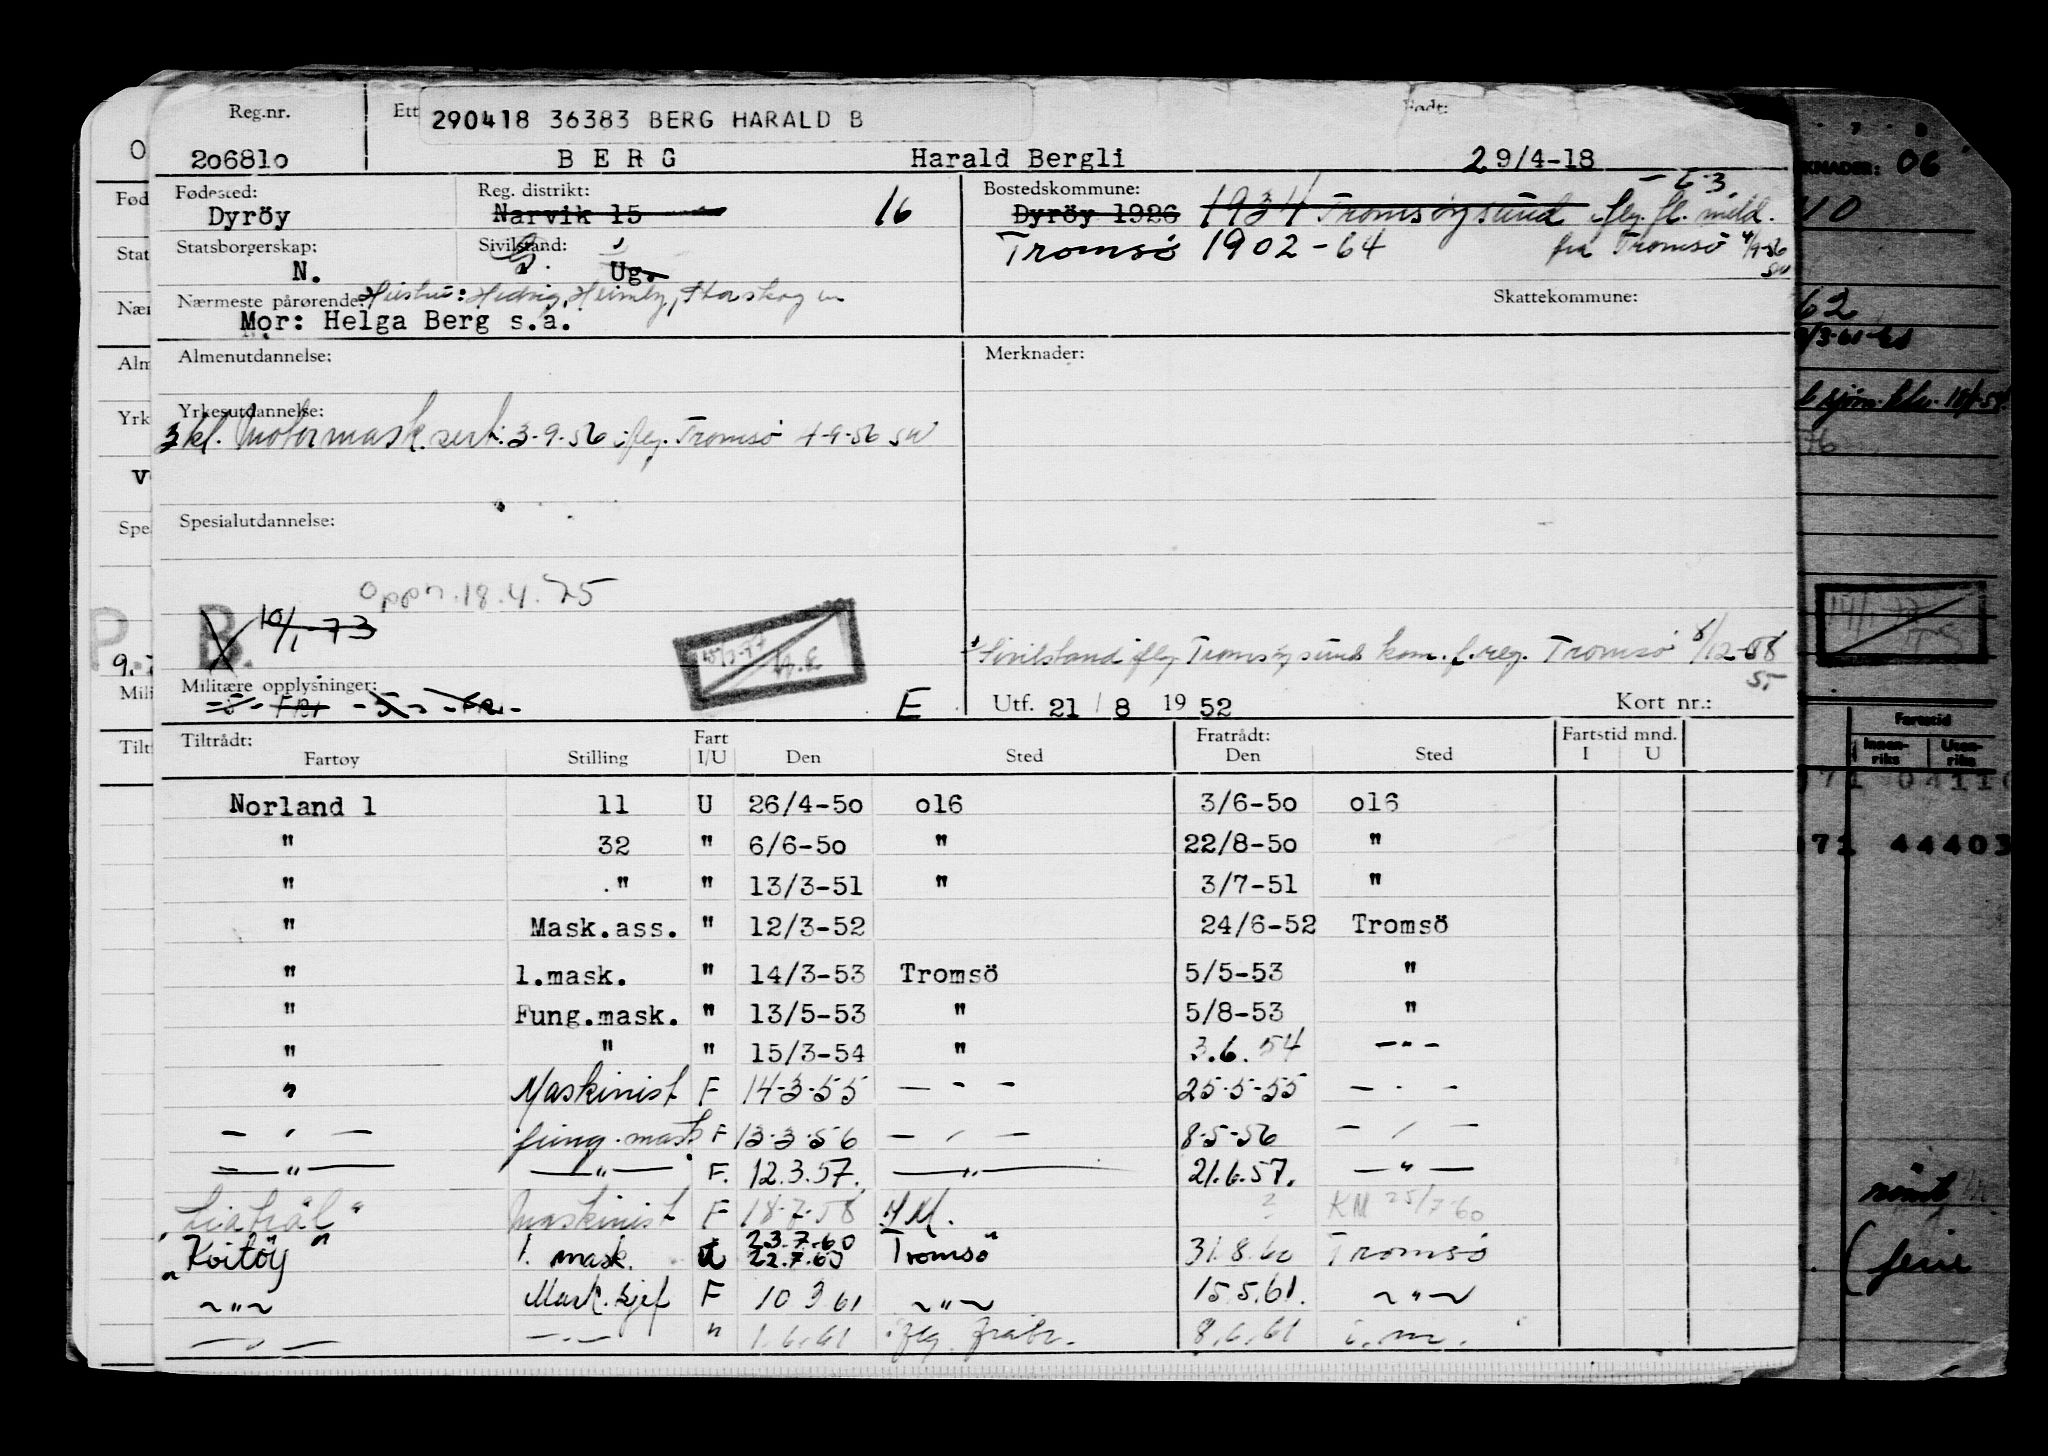 Reg.nr. Ett 290418 36383 BERG HARALD B Født:
206810 BERG Harald Bergli 29/4-18
Fødested: Reg. distrikt: Bostedskommune:
Dyröy Narvik 15 16 Dyröy 1926 1934 Tromsøysund iflg. fl. meld.
Statsborgerskap: Sivilstand: Tromsø 1902-64 fra Tromsö 4/9-56
N. G. Ug. SW
Nærmeste pårørende: Hustru: Hedvig, Skattekommune:
Mor: Helga Berg s.a.
Almenutdannelse: Merknader:
Yrkesutdannelse:
3 kl. Motormask.sert. 3-9-56 iflg. Tromsø 4-9-56 SW
Spesialutdannelse:
Oppn. 18.4.75
B. 10/1-73
Sivilstand iflg Tromsøysund kom. f.reg. Tromsø 8/12-58
Militære opplysninger: E Utf. 21/8 1952 Kort nr.:
Tiltrådt: Fart Fratrådt: Fartstid mnd.
Fartøy Stilling I/U Den Sted Den Sted I U
Norland 1 11 U 26/4-50 016 3/6-50 016
" 32 " 6/6-50 " 22/8-50 "
" " " 13/3-51 " 3/7-51 "
" Mask.ass. " 12/3-52 24/6-52 Tromsö
" 1.mask. " 14/3-53 Tromsö 5/5-53 "
" Fung.mask. " 13/5-53 " 5/8-53 "
" " " 15/3-54 " 3.6.54 -"-
" Maskinist F 14-3-55 -"- 25-5-55 -"-
-"- fung. mask F 13-3-56 -"- 8-5-56 -"-
-"- -"- F. 12.3.57. -"- 21.6.57. -"-
Maskinist F 18-7-58 AM. ? KM 25/7-60
"Kvitöy" 1. mask. 23.7.60 22.7.60 Tromsö 31.8.60 Tromsø
-"- Mask.sjef F 10 3 61 -"- 15.5.61. -"-
-"- -"- " 1.6.61 iflg. fratr. 8.6.61 i.m.
KNADER: 06
62
Fartstid
Innen-riks Uten-riks
71 04110
71 44403
(ferie